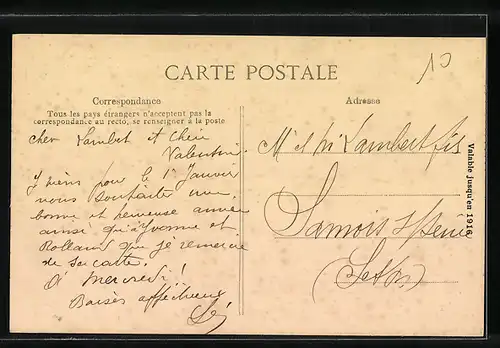 CARTE POSTALE
13
Correspondance
Tous les pays étrangers n'acceptent pas la
correspondance au recto, se renseigner à la poste
Adresse
cher Lambert et chère
Valentine
Je viens pour le 1er Janvier
vous souhaiter une
bonne et heureuse année
ainsi qu'à Yvonne et
Rolland que je remercie
de sa carte.
à mercredi!
Baisers affectueux
Mr et Me Lambert fils
Samois s/Seine
(Set M)
Valable jusqu'en 1916